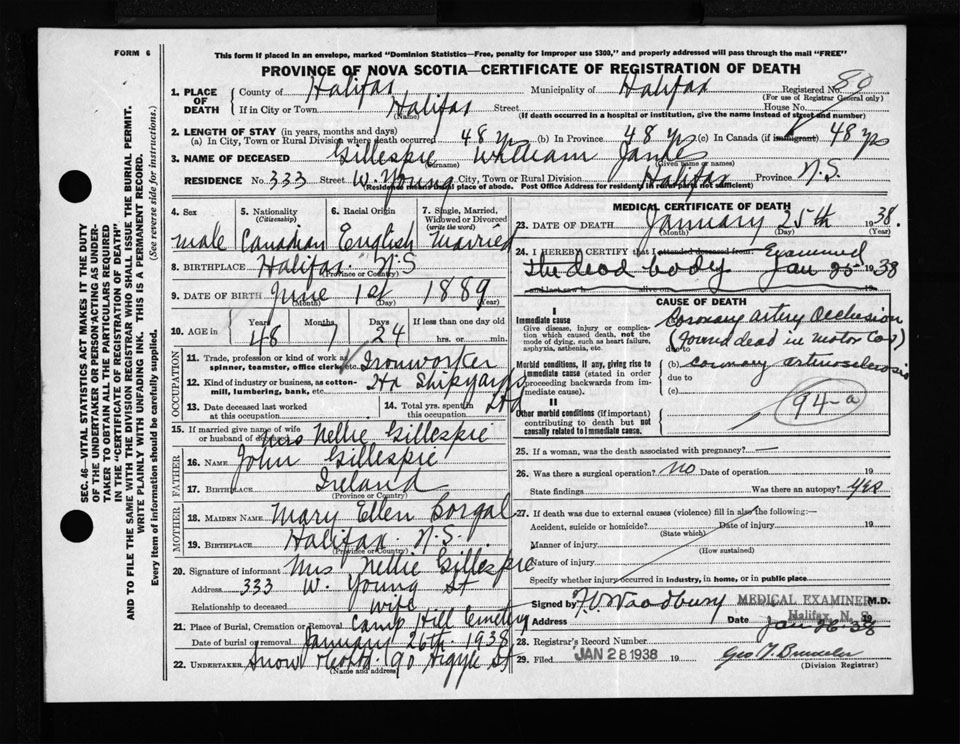 FORM 6
This form if placed in an envelope, marked "Dominion Statistics—Free, penalty for improper use $300," and properly addressed will pass through the mail "FREE"
PROVINCE OF NOVA SCOTIA—CERTIFICATE OF REGISTRATION OF DEATH
SEC. 46—VITAL STATISTICS ACT MAKES IT THE DUTY
OF THE UNDERTAKER OR PERSON ACTING AS UNDER-
TAKER TO OBTAIN ALL THE PARTICULARS REQUIRED
IN THE "CERTIFICATE OF REGISTRATION OF DEATH"
AND TO FILE THE SAME WITH THE DIVISION REGISTRAR WHO SHALL ISSUE THE BURIAL PERMIT.
WRITE PLAINLY WITH UNFADING INK. THIS IS A PERMANENT RECORD.
Every item of information should be carefully supplied. (See reverse side for instructions.)
1. PLACE OF DEATH County of Halifax Municipality of Halifax Registered No. 80
(For use of Registrar General only)
If in City or Town Halifax (Name) Street House No.
(If death occurred in a hospital or institution, give the name instead of street and number)
2. LENGTH OF STAY (in years, months and days)
(a) In City, Town or Rural Division where death occurred 48 yrs (b) In Province 48 yrs (c) In Canada (if immigrant) 48 yrs
3. NAME OF DECEASED Gillespie (Surname) William James (Given name or names)
RESIDENCE No. 333 Street W. Young City, Town or Rural Division Halifax Province N.S.
(Residence means usual place of abode. Post Office Address for residents in rural parts not sufficient)
4. Sex 5. Nationality (Citizenship) 6. Racial Origin 7. Single, Married, Widowed or Divorced (write the word)
male Canadian English Married
8. BIRTHPLACE Halifax N.S.
(Province or Country)
9. DATE OF BIRTH June 1st 1889
(Month) (Day) (Year)
10. AGE in Years Months Days If less than one day old
48 7 24 hrs. or min.
OCCUPATION
11. Trade, profession or kind of work as spinner, teamster, office clerk, etc. Ironworker
12. Kind of industry or business, as cotton-mill, lumbering, bank, etc. Hx Shipyards Ltd
13. Date deceased last worked at this occupation 14. Total yrs. spent in this occupation
15. If married give name of wife or husband of deceased Mrs Nellie Gillespie
FATHER
16. NAME John Gillespie
17. BIRTHPLACE Ireland
(Province or Country)
MOTHER
18. MAIDEN NAME Mary Ellen Borgal
19. BIRTHPLACE Halifax N.S.
(Province or Country)
20. Signature of informant Mrs Nellie Gillespie
Address 333 W. Young St
Relationship to deceased wife
21. Place of Burial, Cremation or Removal Camp Hill Cemetery
Date of burial or removal January 26th 1938
22. UNDERTAKER Snow 90 Argyle St
(Name and address)
MEDICAL CERTIFICATE OF DEATH
23. DATE OF DEATH January 25th 1938.
(Month) (Day) (Year)
24. I HEREBY CERTIFY that I attended deceased from Examined
the dead body Jan 25 1938
and last saw h alive on 19
CAUSE OF DEATH
I
Immediate cause
Give disease, injury or complication which caused death, not the mode of dying, such as heart failure, asphyxia, asthenia, etc.
Coronary artery Occlusion
(found dead in motor car)
due to
Morbid conditions, if any, giving rise to immediate cause (stated in order proceeding backwards from immediate cause).
(b) coronary arteriosclerosis
due to
(c)
II
Other morbid conditions (if important) contributing to death but not causally related to immediate cause.
94-a
25. If a woman, was the death associated with pregnancy? —
26. Was there a surgical operation? no Date of operation 19
State findings Was there an autopsy? yes
27. If death was due to external causes (violence) fill in also the following:—
Accident, suicide or homicide? Date of injury 19
(State which)
Manner of injury
(How sustained)
Nature of injury
Specify whether injury occurred in industry, in home, or in public place
Signed by F.V. Woodbury MEDICAL EXAMINER M.D.
Address Halifax N. S. Date Jan 26 38 19
28. Registrar's Record Number
29. Filed JAN 28 1938 19
(Division Registrar)